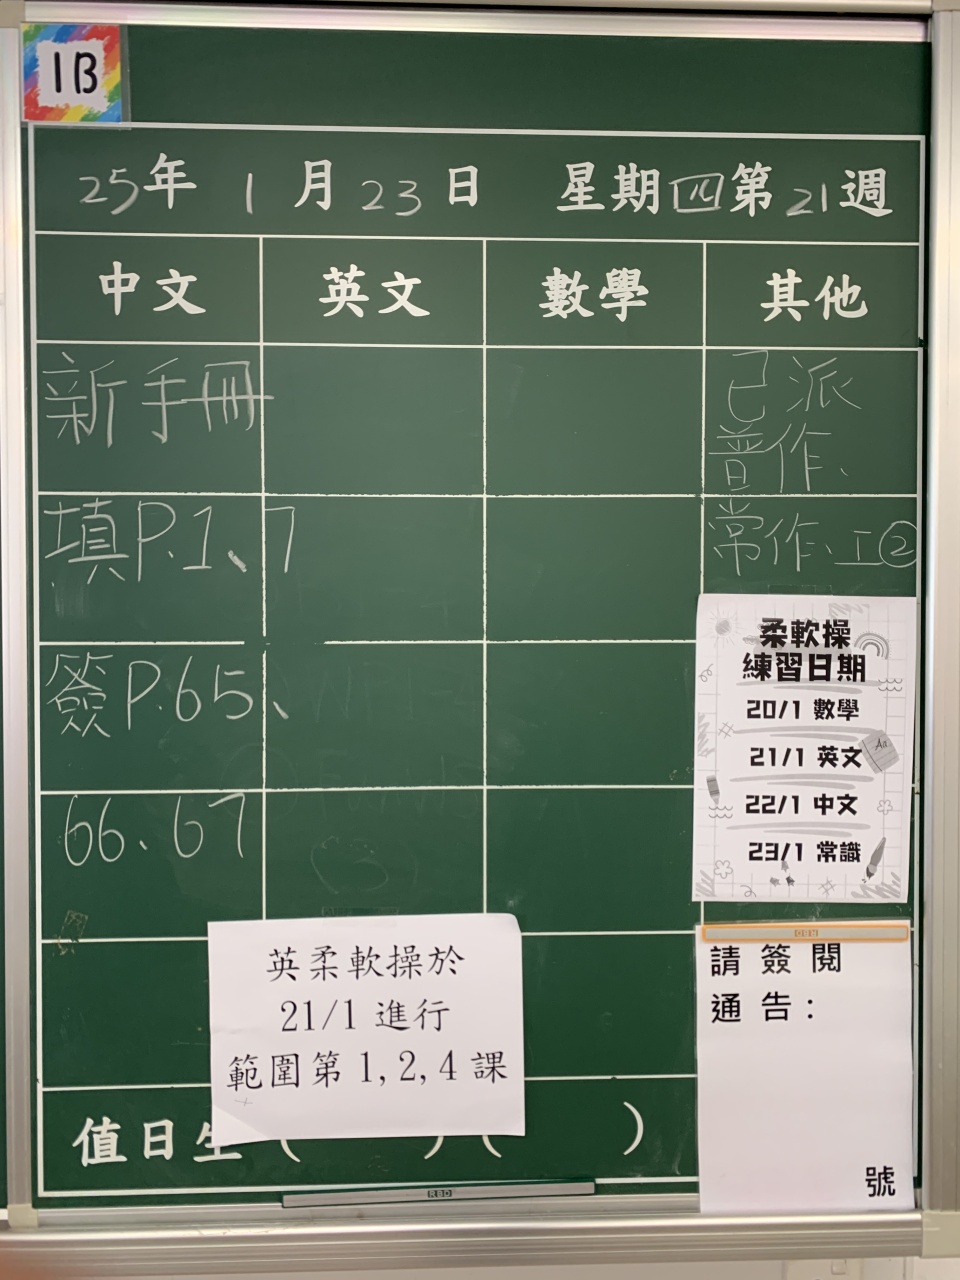 1B
25年 1月23日 星期四第21週
中文 英文 數學 其他
新手冊
填P.1、7
簽P.65、
66、67
已派
普作、
常作、工②
柔軟操
練習日期
20/1 數學
21/1 英文
22/1 中文
23/1 常識
英柔軟操於
21/1 進行
範圍第 1,2,4 課
請簽閱
通告：
號
值日生（ ）（ ）
RBD